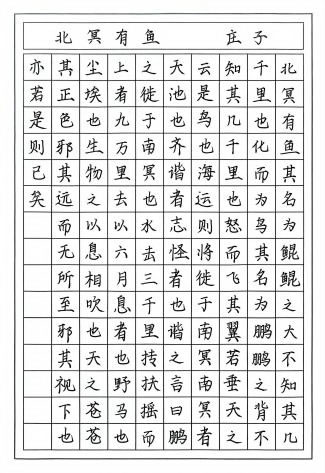 北冥有鱼 庄子
北冥有鱼其名为鲲鲲之大不知其几
千里也化而为鸟其名为鹏鹏之背不
知其几千里也怒而飞其翼若垂天之
云是鸟也海运则将徙于南冥南冥者
天池也齐谐者志怪者也谐之言曰鹏
之徙于南冥也水击三千里抟扶摇而
上者九万里去以六月息者也野马也
尘埃也生物之以息相吹也天之苍苍
其正色邪其远而无所至邪其视下也
亦若是则已矣